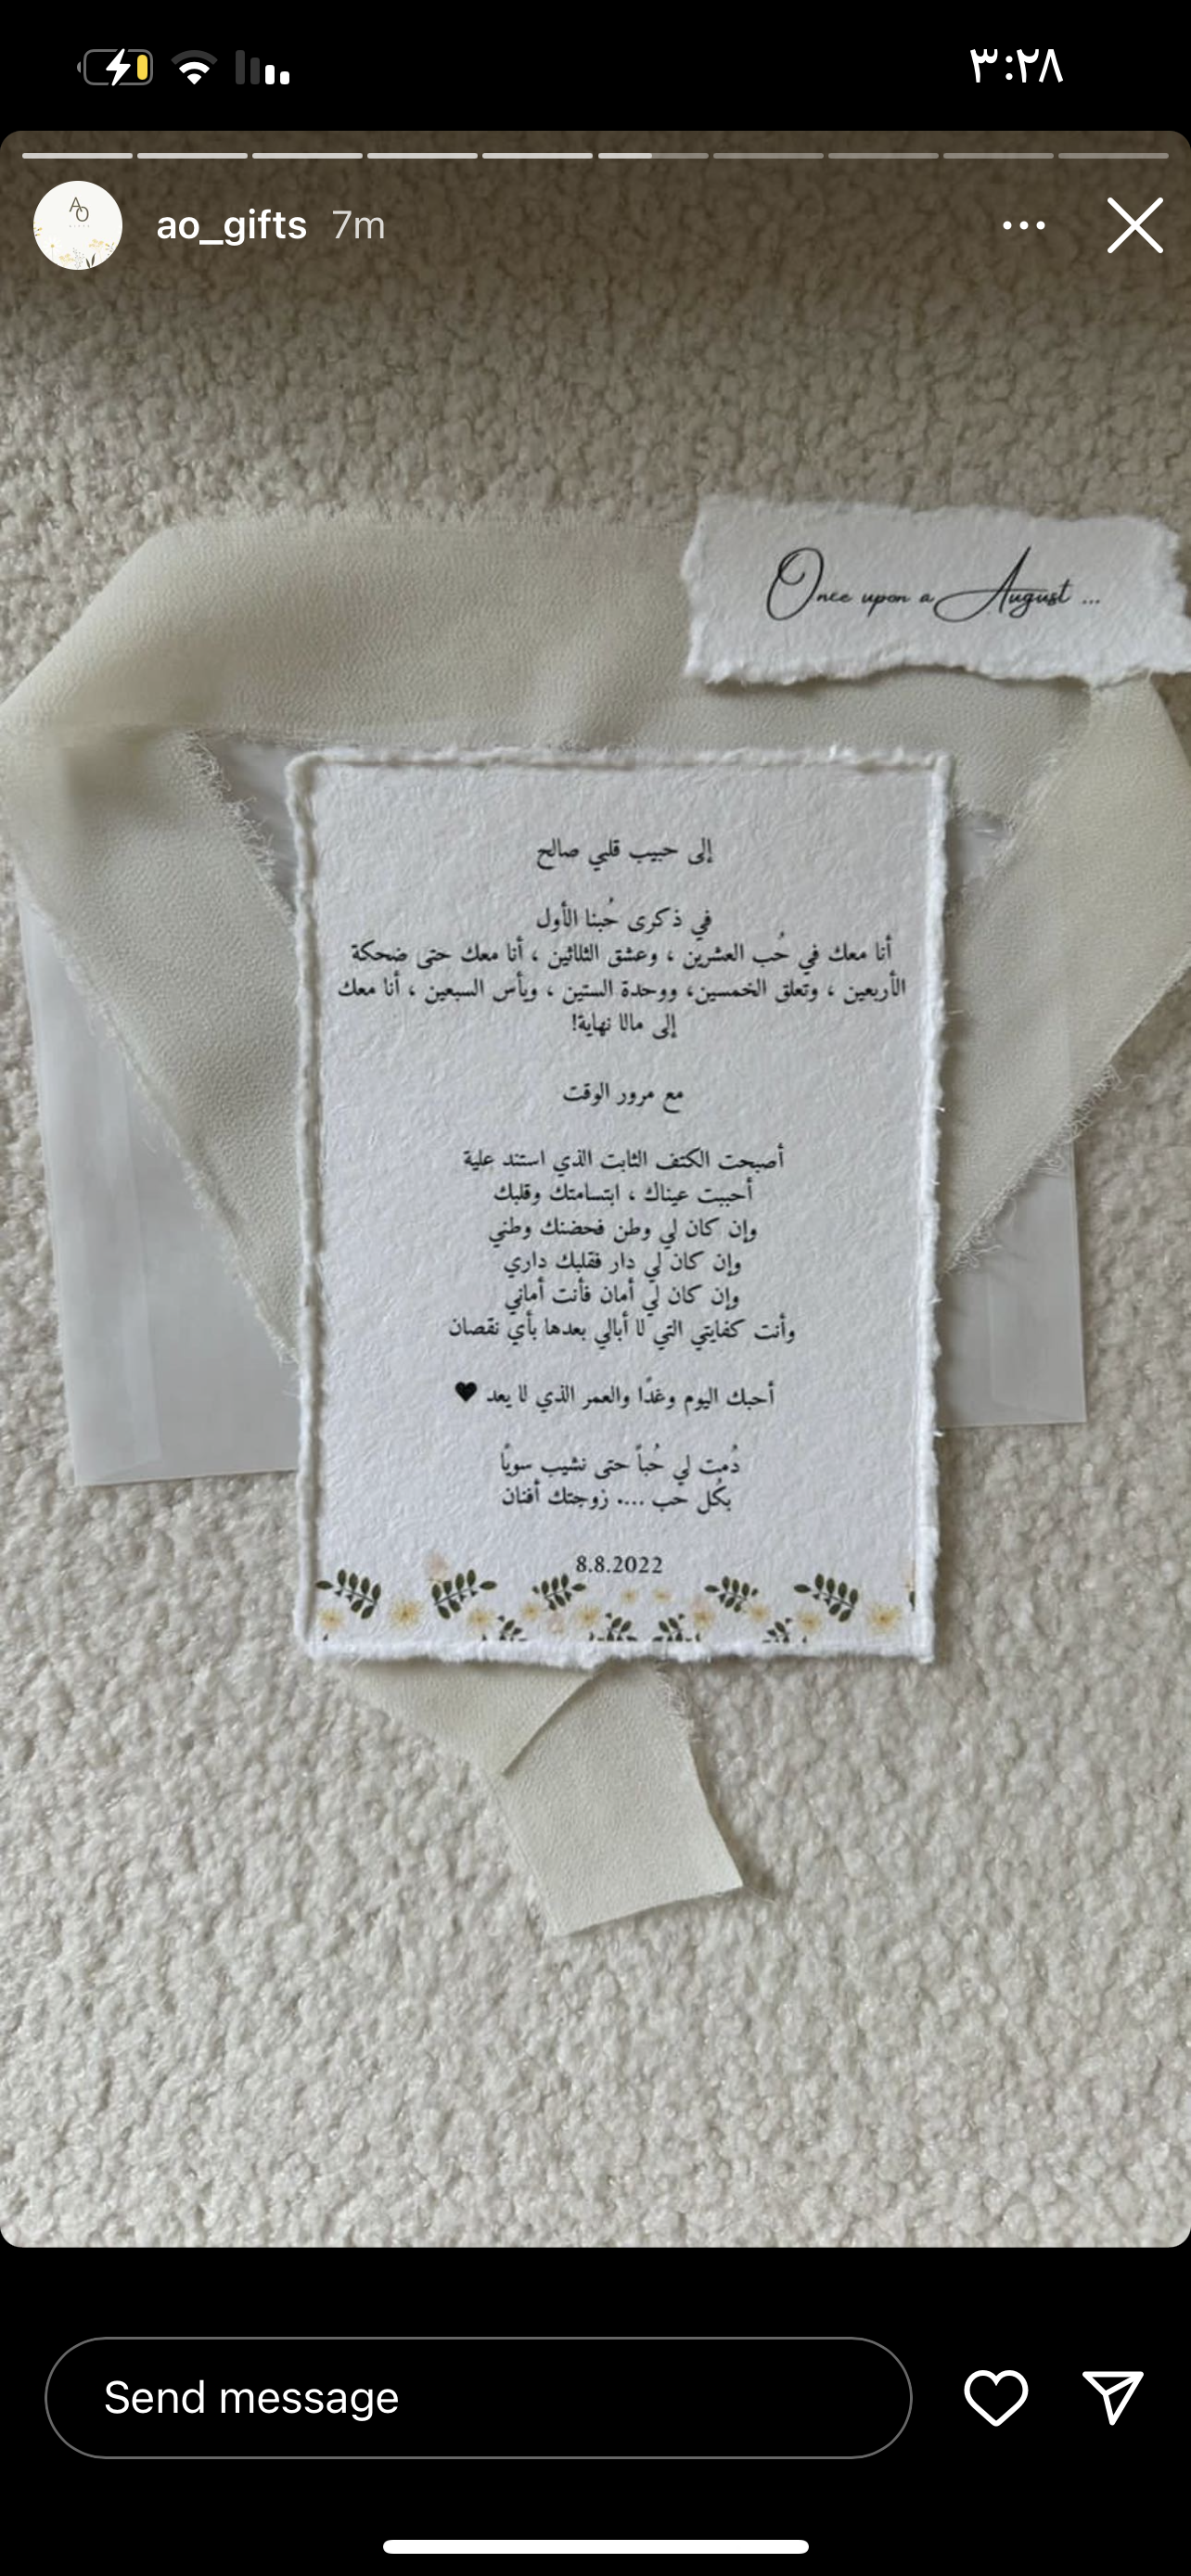 ٣:٢٨
AO
ao_gifts 7m
Once upon a August ...
إلى حبيب قلبي صالح
في ذكرى حُبنا الأول
أنا معك في حُب العشرين ، وعشق الثلاثين ، أنا معك حتى ضحكة
الأربعين ، وتعلق الخمسين، ووحدة الستين ، ويأس السبعين ، أنا معك
إلى مالا نهاية!
مع مرور الوقت
أصبحت الكتف الثابت الذي استند علية
أحببت عيناك ، ابتسامتك وقلبك
وإن كان لي وطن فحضنك وطني
وإن كان لي دار فقلبك داري
وإن كان لي أمان فأنت أماني
وأنت كفايتي التي لا أبالي بعدها بأي نقصان
أحبك اليوم وغدًا والعمر الذي لا يعد ♥
دُمت لي حُباً حتى نشيب سويًا
بكُل حب .... زوجتك أفنان
8.8.2022
Send message